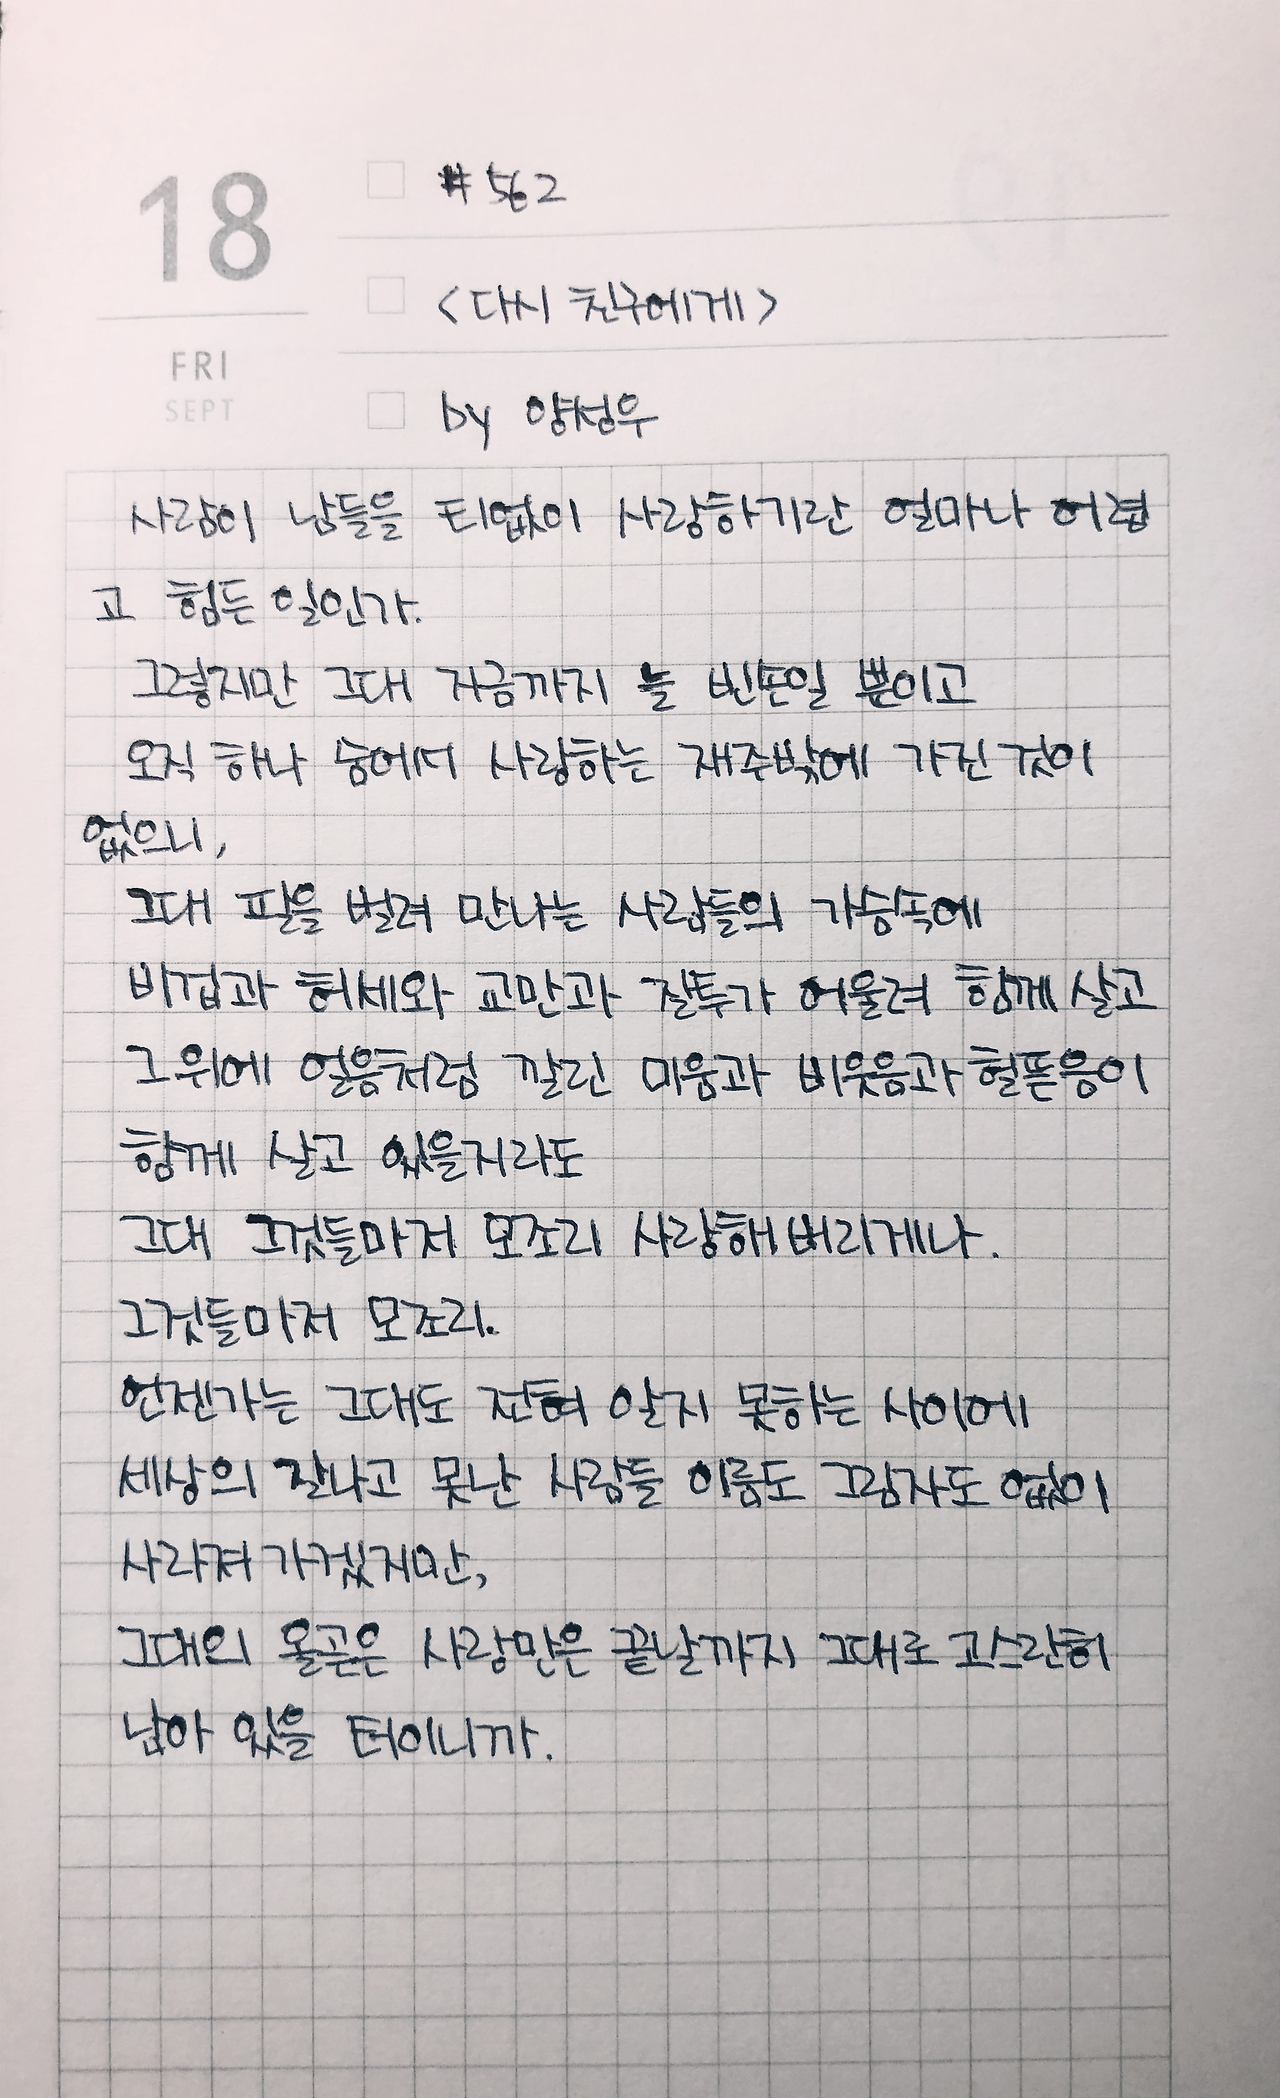 18
FRI
SEPT
#562
<다시 친구에게>
by 양성우
사람이 남들을 티없이 사랑하기란 얼마나 어렵
고 힘든 일인가.
그렇지만 그대 지금까지 늘 빈손일 뿐이고
오직 하나 숨어서 사랑하는 재주밖에 가진 것이
없으니,
그대 팔을 벌려 만나는 사람들의 가슴속에
비겁과 허세와 교만과 질투가 어울려 함께 살고
그 위에 얼음처럼 깔린 미움과 비웃음과 헐뜯음이
함께 살고 있을지라도
그대 그것들마저 모조리 사랑해 버리게나.
그것들마저 모조리.
언젠가는 그대도 전혀 알지 못하는 사이에
세상의 잘나고 못난 사람들 이름도 그림자도 없이
사라져 가겠지만,
그대의 올곧은 사랑만은 끝날까지 그대로 고스란히
남아 있을 터이니까.